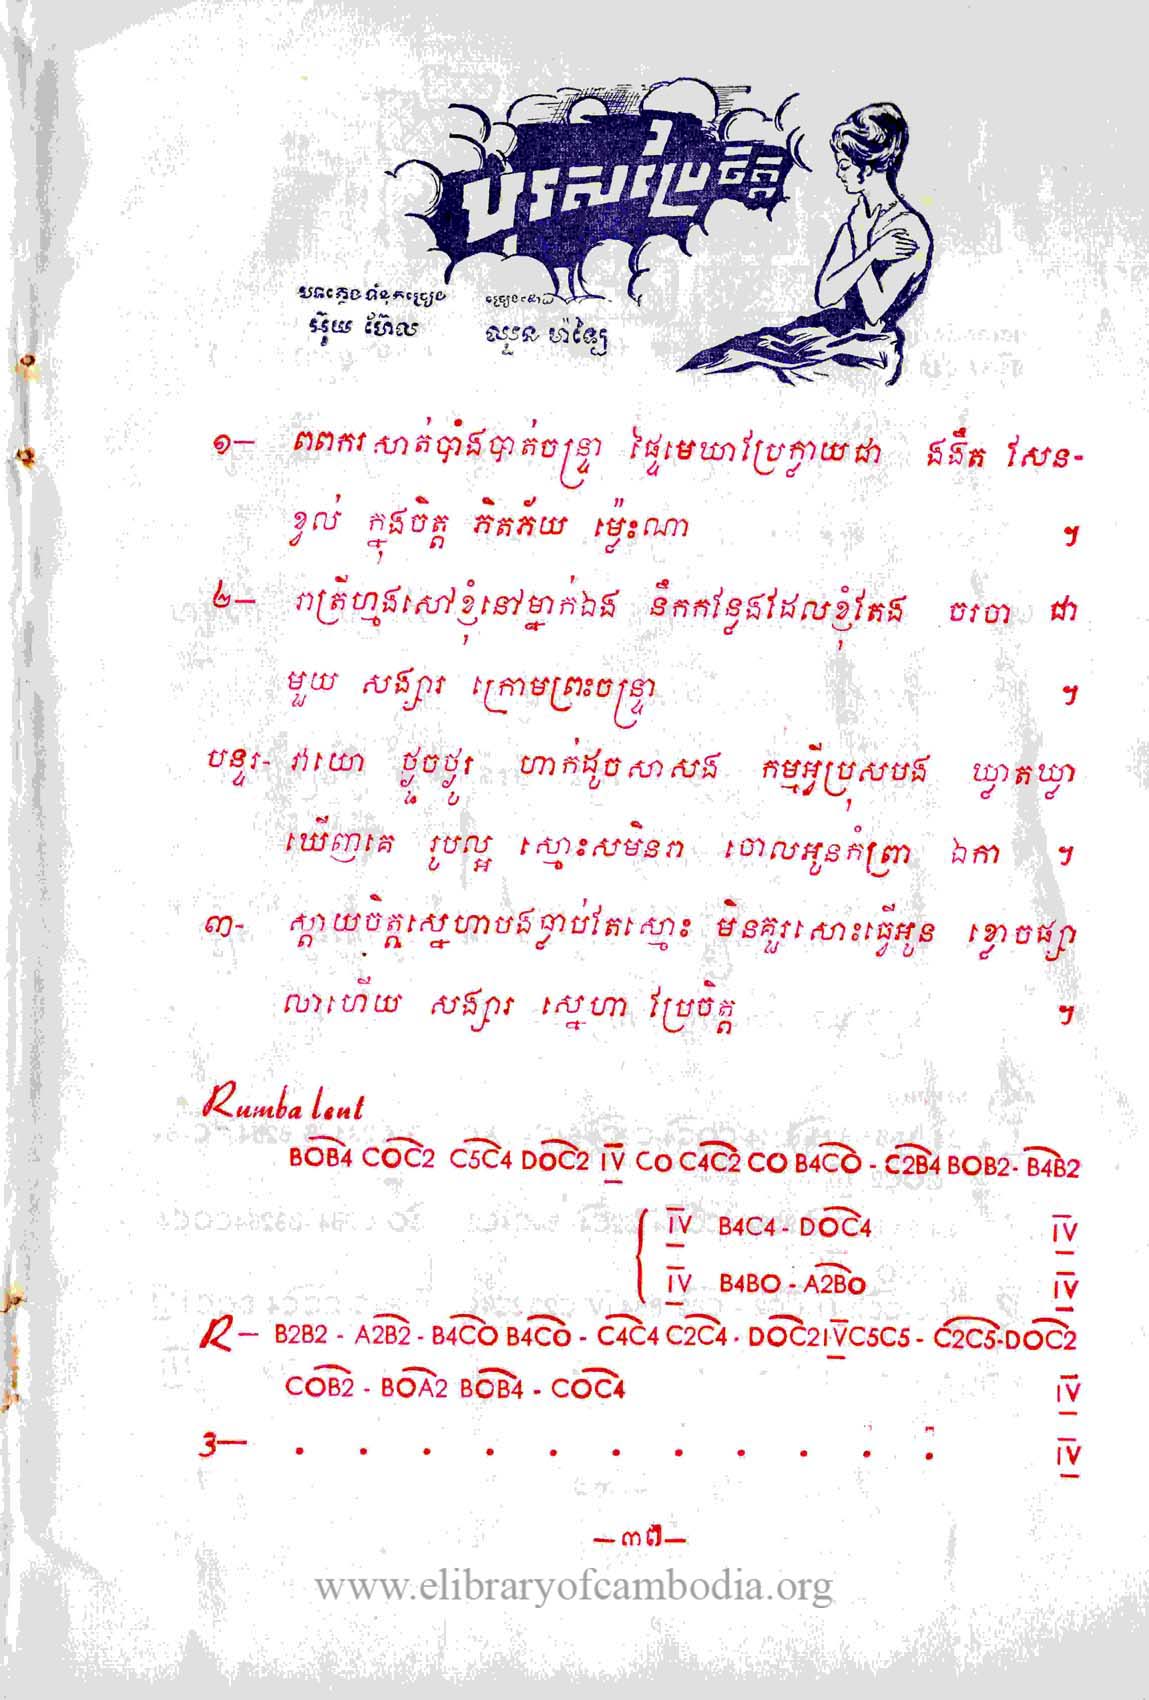 បុរសប្រែចិត្ត
បទភ្លេងទំនុកច្រៀង ច្រៀងដោយ
អ៊ុយ ហ៊ែល ឈួន ម៉ាឡៃ
១— ពពករសាត់បាំងបាត់ចន្ទ្រា ផ្ទៃមេឃាប្រែក្លាយជា ងងឹត សែន-
ខ្វល់ ក្នុងចិត្ត ភិតភ័យ ម្ល៉េះណា ។
២— រាត្រីហ្មងសៅខ្ញុំនៅម្នាក់ឯង នឹកកន្លែងដែលខ្ញុំតែង ចរចា ជា
មួយ សង្សារ ក្រោមព្រះចន្ទ្រា ។
បន្ទរ- វាយោ ថ្ងួចថ្ងូរ ហាក់ដូចសាសង កម្មអ្វីប្រុសបង ឃ្លាតឃ្លា
ឃើញគេ រូបល្អ ស្មោះសមិនរា ចោលអូនកំព្រា ឯកា ។
៣- ស្ដាយចិត្តស្នេហាបងធ្លាប់តែស្មោះ មិនគួរសោះធ្វើអូន ខ្លោចផ្សា
លាហើយ សង្សារ ស្នេហា ប្រែចិត្ត ។
Rumba lent
BOB4 COC2 C5C4 DOC2 IV CO C4C2 CO B4CO - C2B4 BOB2- B4B2
IV B4C4 - DOC4 IV
IV B4BO - A2BO IV
R— B2B2 - A2B2 - B4CO B4CO - C4C4 C2C4 - DOC2 IV C5C5 - C2C5-DOC2
COB2 - BOA2 BOB4 - COC4 IV
3— . . . . . . . . . . . IV
—៣៧—
www.elibraryofcambodia.org